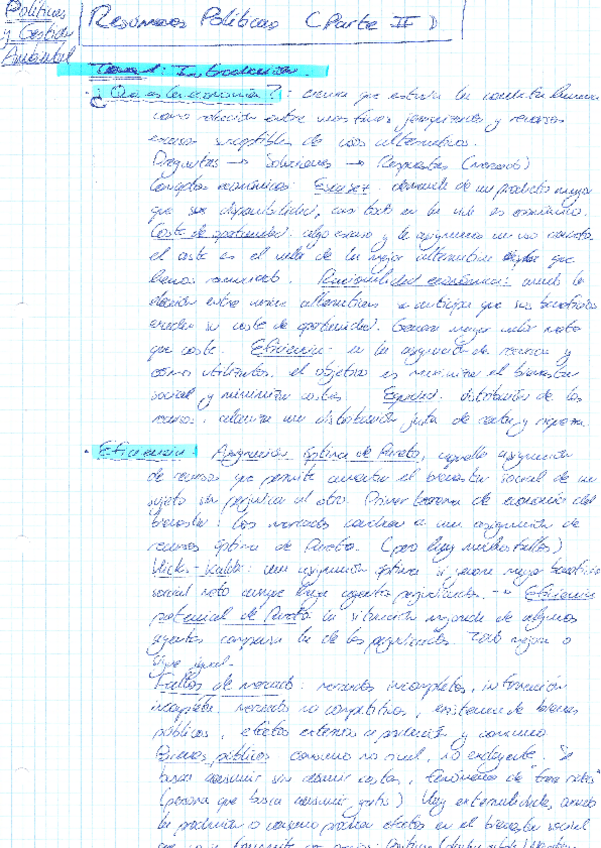 Políticas
y Gestión
Ambiental
Resúmenes Políticas (Parte II)
Tema 1: Introducción.
· ¿Qué es la economía?: ciencia que estudia la conducta humana
como relación entre unos fines jerarquizados y recursos
escasos susceptibles de usos alternativos.
Preguntas → Soluciones → Respuestas (mercado)
Conceptos económicos: Escasez: demanda de un producto mayor
que su disponibilidad, casi todo en la vida es económico.
Coste de oportunidad: algo escaso y le asignamos un uso concreto
el coste es el valor de la mejor alternativa que
hemos renunciado. Racionalidad económica: cuando la
elección entre varias alternativas se anticipa que sus beneficios
exceden su coste de oportunidad. Genera mayor valor neto
que coste. Eficiencia: en la asignación de recursos y
cómo utilizarlos. el objetivo es maximizar el bienestar
social y minimizar costes. Equidad: distribución de los
recursos: una distribución justa de renta y riqueza.
· Eficiencia: Asignación óptima de Pareto, aquella asignación
de recursos que permite aumentar el bienestar social de un
sujeto sin perjudicar al otro. Primer teorema de economía del
bienestar: Los mercados conducen a una asignación de
recursos óptima de Pareto. (pero hay muchos fallos)
Hicks-Kaldor: una asignación óptima si genera mayor beneficio
social neto aunque haya agentes perjudicados. → Eficiencia
potencial de Pareto la situación mejorada de algunos
agentes compensa la de los perjudicados. Todo mejora o
sigue igual.
Fallos de mercado: mercados incompletos, información
incompleta, mercado no competitivos, existencia de bienes
públicos, efectos externos a producción y consumo
Bienes públicos consumo no rival, no excluyente. Se
busca consumir sin asumir costes, fenómeno de "free rider"
(persona que busca consumir gratis) Hay externalidades, cuando
la producción o consumo producen efectos en el bienestar social